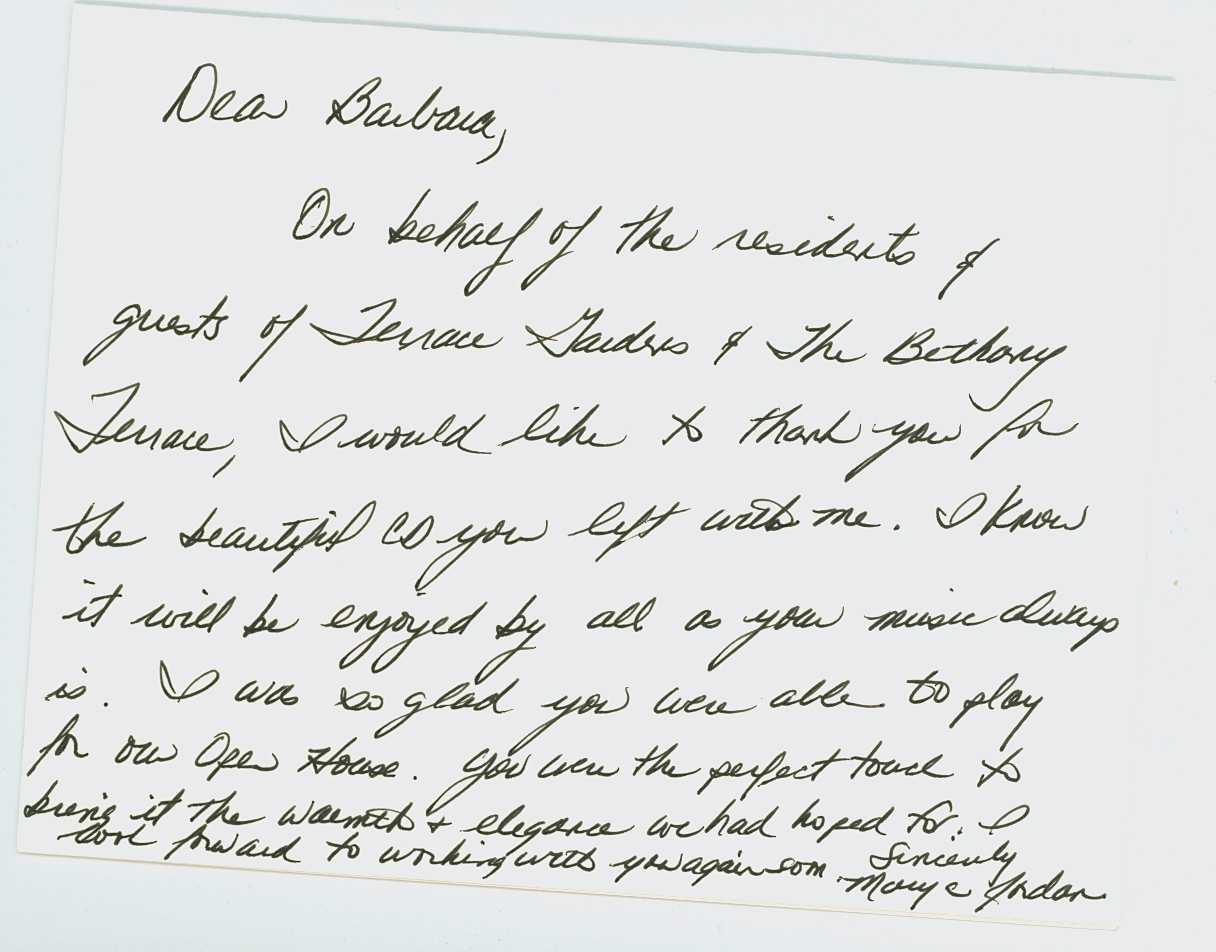 Dear Barbara,
On behalf of the residents &
guests of Terrace Gardens & The Bethany
Terrace, I would like to thank you for
the beautiful CD you left with me. I know
it will be enjoyed by all as your music always
is. I was so glad you were able to play
for our Open House. You were the perfect touch to
bring it the warmth & elegance we had hoped for. I
look forward to working with you again soon. Sincerely
Jordan